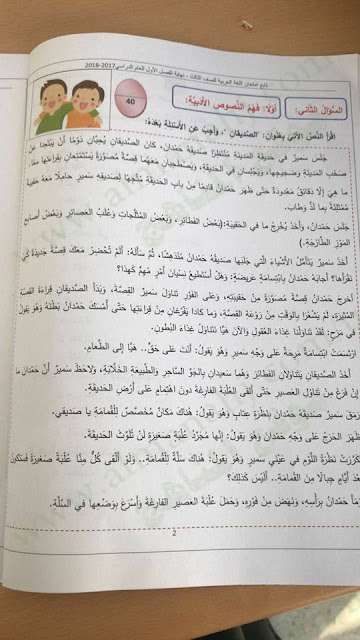 تابع امتحان اللغة العربية للصف الثالث - نهاية الفصل الأول للعام الدراسي 2017-2018
السُّؤال الثّاني:
أوّلًا: فَهْمُ النُّصوصِ الأَدَبِيَّةِ:
40
اقْرَأ النَّصَّ الآتيَ بِعُنوان: "الصَّديقان" ، وَأَجِبْ عَنِ الأَسْئِلَةِ بَعْدَهُ:
جَلَسَ سَميرٌ في حَديقَةِ المَدينَةِ مُنْتَظِرًا صَديقَهُ حَمْدانَ، كانَ الصَّديقانِ يُحِبّانِ دَوْمًا أَنْ يَبْتَعِدا عَنْ
صَخَبِ المَدينَةِ وَضَجيجِها، وَيَجْلِسانِ في الحَديقَةِ، وَيَصْطَحِبانِ مَعَهُما قِصَّةً مُصَوَّرَةً يَسْتَمْتِعانِ بِقِراءَتِها مَعًا.
ما هِيَ إلّا دَقائِقُ مَعْدودَةٌ حَتّى ظَهَرَ حَمْدانُ قادِمًا مِنْ بابِ الحَديقَةِ مُتَّجِهًا لِصَديقِهِ سَميرٍ حامِلًا مَعَهُ حَقيبَةً
مُمْتَلِئَةً بِما لَذَّ وَطابَ.
جَلَسَ حَمْدانُ، وَأَخَذَ يُخْرِجُ ما في الحَقيبَةِ:( بَعْضَ الفَطائِرِ، وَبَعْضَ المُثَلَّجاتِ وَعُلَبَ العَصائِرِ وَبَعْضَ أَصابِعِ
المَوْزِ الطّازَجَةِ.)
أَخَذَ سَميرٌ يَتَأَمَّلُ الأَشْياءَ الَّتي جَلَبَها صَديقُهُ حَمْدانُ مُنْدَهِشًا، ثُمَّ سَأَلَهُ: أَلَمْ تُحْضِرْ مَعَكَ قِصَّةً جَديدَةً كَيْ
نَقْرَأَها؟ أَجابَهُ حَمْدانُ بِابْتِسامَةٍ عَريضَةٍ: وَهَلْ أَسْتَطيعُ نِسْيانَ أَمْرٍ مُهِمٍّ كَهذا؟
أَخْرَجَ حَمْدانُ قِصَّةً مُصَوَّرَةً مِنْ حَقيبَتِهِ، وَعَلى الفَوْرِ تَناوَلَ سَميرٌ القِصَّةَ، وَبَدَأَ الصَّديقانِ قِراءَةَ القِصَّةِ
المُثيرَةِ، لَمْ يَشْعُرا بِالوَقْتِ مِنْ رَوْعَةِ القِصَّةِ، وَما كادا يَفْرُغانِ مِنْ قِراءَتِها حَتّى أَمْسَكَ حَمْدانُ بَطْنَهُ وَهُوَ يَقولُ
في مَرَحٍ: لَقَدْ تَناوَلْنا غِذاءَ العُقولِ وَالآنَ هَيّا نَتَناوَلُ غِذاءَ البُطونِ.
ارْتَسَمَتْ ابْتِسامَةٌ مَرِحَةٌ عَلى وَجْهِ سَميرٍ وَهُوَ يَقولُ: أَنْتَ عَلى حَقٍّ.. هَيّا إِلى الطَّعامِ.
أَخَذَ الصَّديقانِ يَتَناوَلانِ الفَطائِرَ وَهُما سَعيدانِ بِالجَوِّ السّاحِرِ وَالطَّبيعَةِ الخَلّابَةِ، وَلاحَظَ سَميرٌ أَنَّ حَمْدانَ ما
إِنْ فَرَغَ مِنْ تَناوُلِ العَصيرِ حَتّى أَلْقى العُلْبَةَ الفارِغَةَ دونَ اهْتِمامٍ عَلى أَرْضِ الحَديقَةِ.
رَمَقَ سَميرٌ صَديقَهُ حَمْدانَ بِنَظْرَةِ عِتابٍ وَهُوَ يَقولُ: هُناكَ مَكانٌ مُخَصَّصٌ لِلْقُمامَةِ يا صَديقي.
ظَهَرَ الحَرَجُ عَلى وَجْهِ حَمْدانَ وَهُوَ يَقولُ: إِنَّها مُجَرَّدُ عُلْبَةٍ صَغيرَةٍ لَنْ تُلَوِّثَ الحَديقَةَ.
تَكَرَّرَتْ نَظْرَةُ اللَّوْمِ في عَيْنَيْ سَميرٍ وَهُوَ يَقولُ: هُناكَ سَلَّةٌ لِلْقُمامَةِ.. وَلَوْ أَلْقى كُلٌّ مِنّا عُلْبَةً صَغيرَةً فَسَتَكونُ
بَعْدَ أَيّامٍ جِبالًا مِنَ القُمامَةِ.. أَلَيْسَ كَذلِكَ؟
أَوْمَأَ حَمْدانُ بِرَأْسِهِ، وَنَهَضَ مِنْ فَوْرِهِ، وَحَمَلَ عُلْبَةَ العَصيرِ الفارِغَةَ وَأَسْرَعَ بِوَضْعِها في السَّلَّةِ.
2